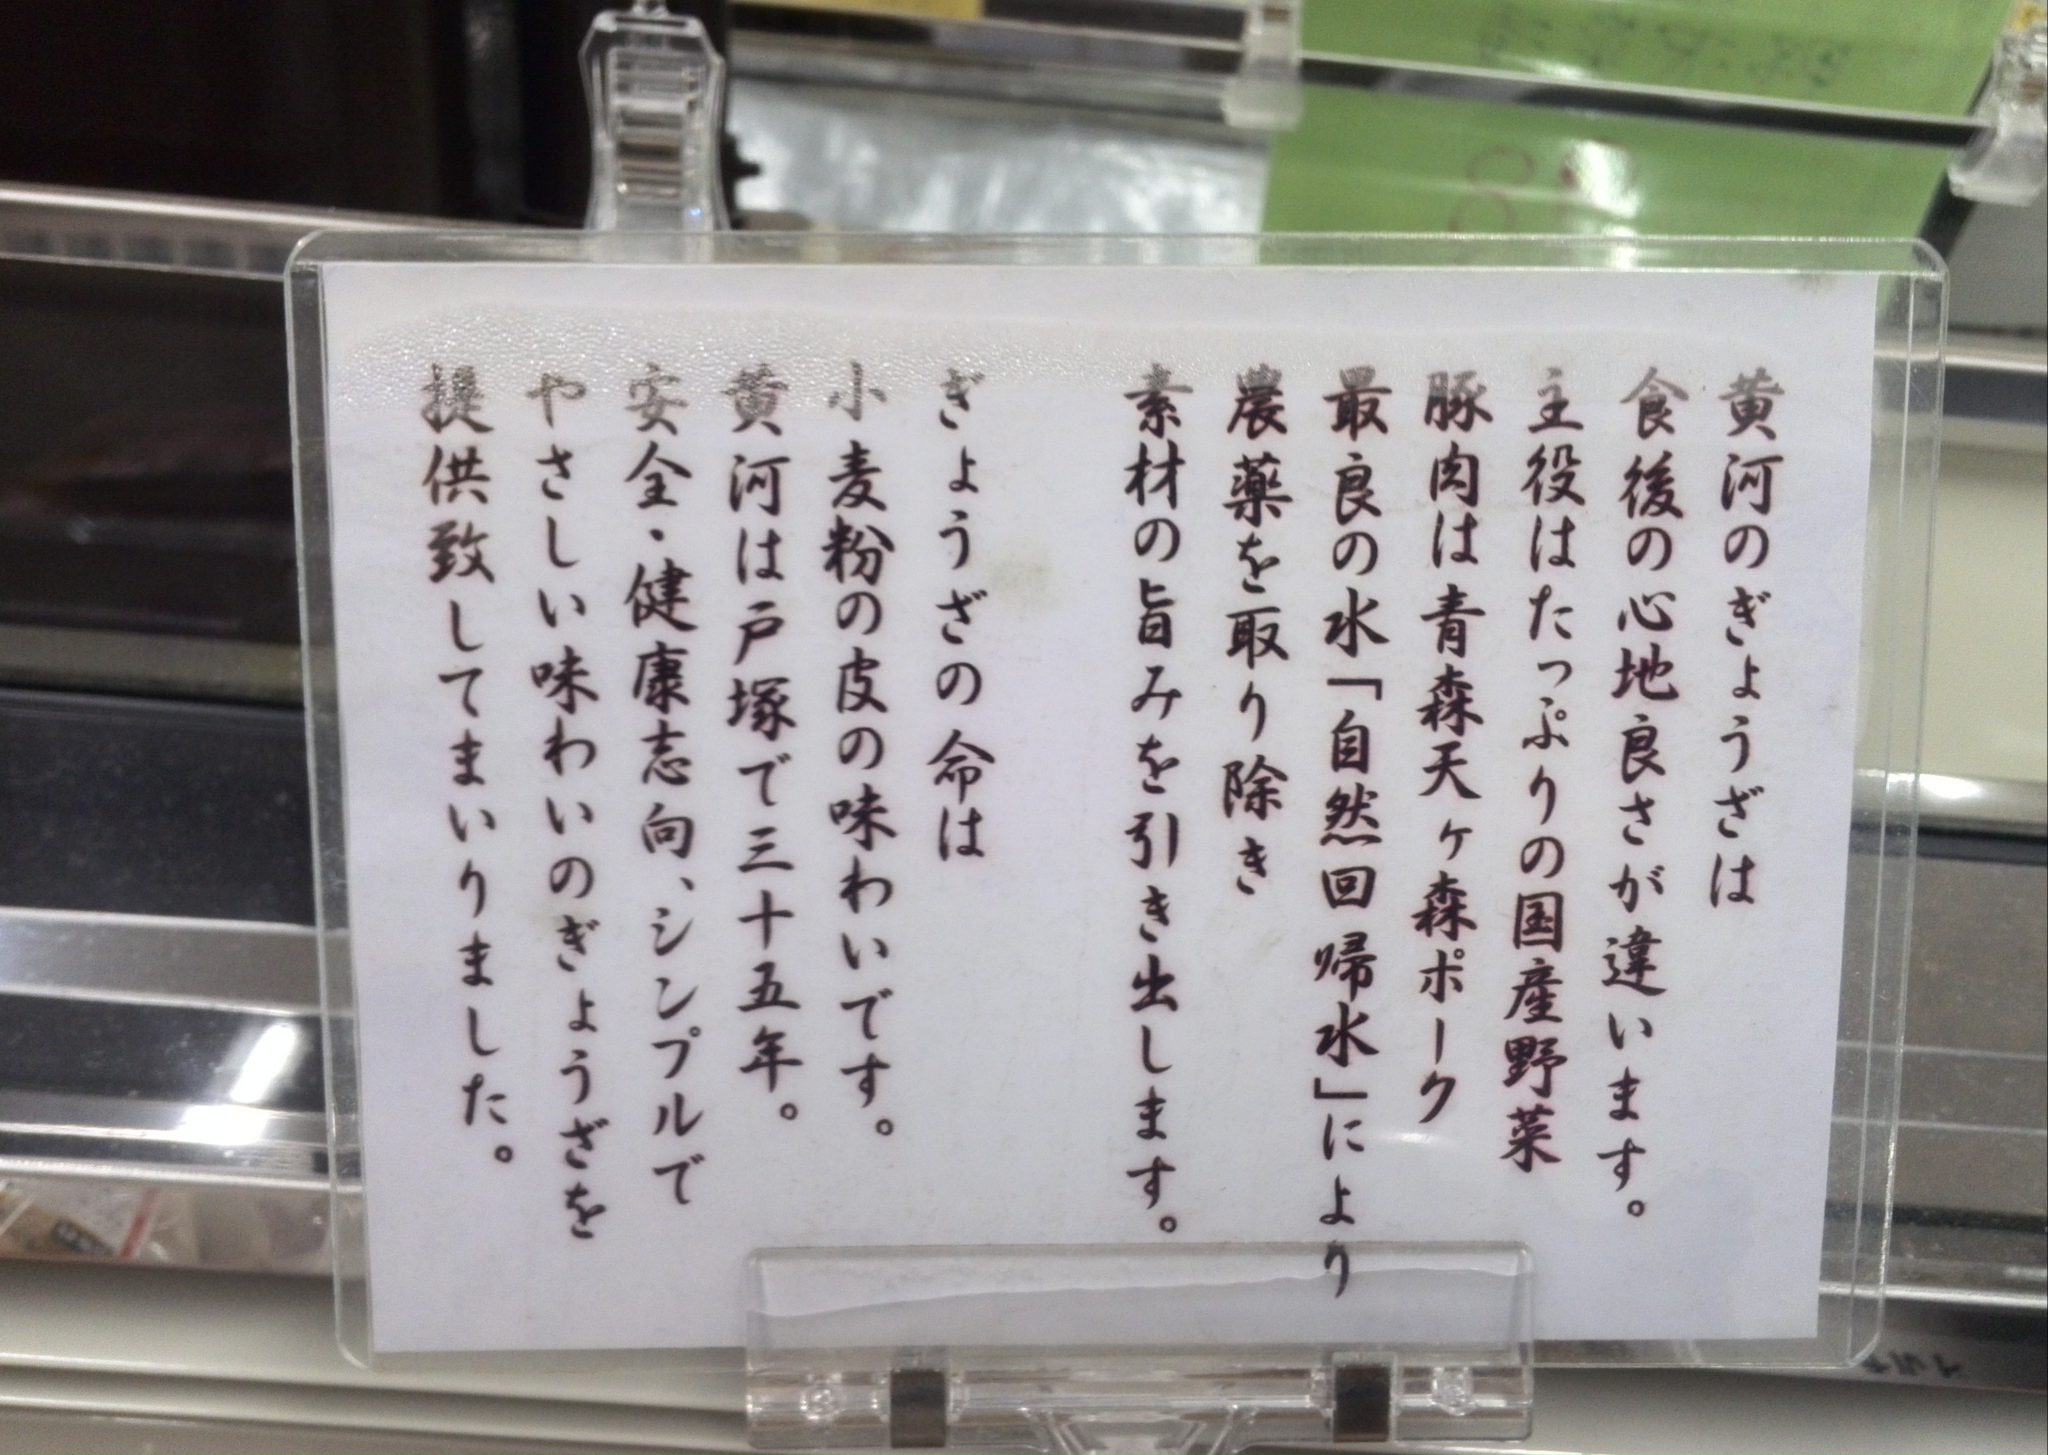 黄河のぎょうざは
食後の心地良さが違います。
主役はたっぷりの国産野菜
豚肉は青森天ヶ森ポーク
最良の水「自然回帰水」により
農薬を取り除き
素材の旨みを引き出します。
ぎょうざの命は
小麦粉の皮の味わいです。
黄河は戸塚で三十五年。
安全・健康志向、シンプルで
やさしい味わいのぎょうざを
提供致してまいりました。